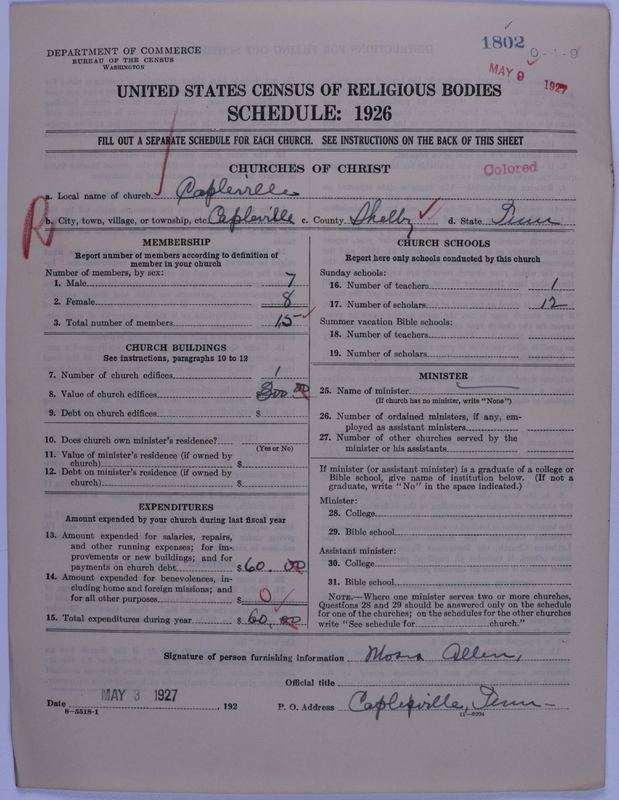 1802
0-1-9
DEPARTMENT OF COMMERCE
BUREAU OF THE CENSUS
WASHINGTON
MAY 9 1927
UNITED STATES CENSUS OF RELIGIOUS BODIES
SCHEDULE: 1926
FILL OUT A SEPARATE SCHEDULE FOR EACH CHURCH. SEE INSTRUCTIONS ON THE BACK OF THIS SHEET
CHURCHES OF CHRIST
Colored
a. Local name of church Capleville
R
b. City, town, village, or township, etc. Capleville c. County Shelby d. State Tenn
MEMBERSHIP
Report number of members according to definition of
member in your church
Number of members, by sex:
1. Male 7
2. Female 8
3. Total number of members 15
CHURCH BUILDINGS
See instructions, paragraphs 10 to 12
7. Number of church edifices 1
8. Value of church edifices 300 00
9. Debt on church edifices $
10. Does church own minister's residence?
(Yes or No)
11. Value of minister's residence (if owned by
church) $
12. Debt on minister's residence (if owned by
church) $
EXPENDITURES
Amount expended by your church during last fiscal year
13. Amount expended for salaries, repairs,
and other running expenses; for im-
provements or new buildings; and for
payments on church debt $60. 00
14. Amount expended for benevolences, in-
cluding home and foreign missions; and
for all other purposes $ 0
15. Total expenditures during year $ 60, 00
CHURCH SCHOOLS
Report here only schools conducted by this church
Sunday schools:
16. Number of teachers 1
17. Number of scholars 12
Summer vacation Bible schools:
18. Number of teachers
19. Number of scholars
MINISTER
25. Name of minister
(If church has no minister, write "None")
26. Number of ordained ministers, if any, em-
ployed as assistant ministers
27. Number of other churches served by the
minister or his assistants
If minister (or assistant minister) is a graduate of a college or
Bible school, give name of institution below. (If not a
graduate, write "No" in the space indicated.)
Minister:
28. College
29. Bible school
Assistant minister:
30. College
31. Bible school
NOTE.—Where one minister serves two or more churches,
Questions 28 and 29 should be answered only on the schedule
for one of the churches; on the schedules for the other churches
write "See schedule for church."
Signature of person furnishing information Allen,
Official title
Date MAY 3 1927, 192 P. O. Address Capleville, Tenn-
8-5518-1
11-9294